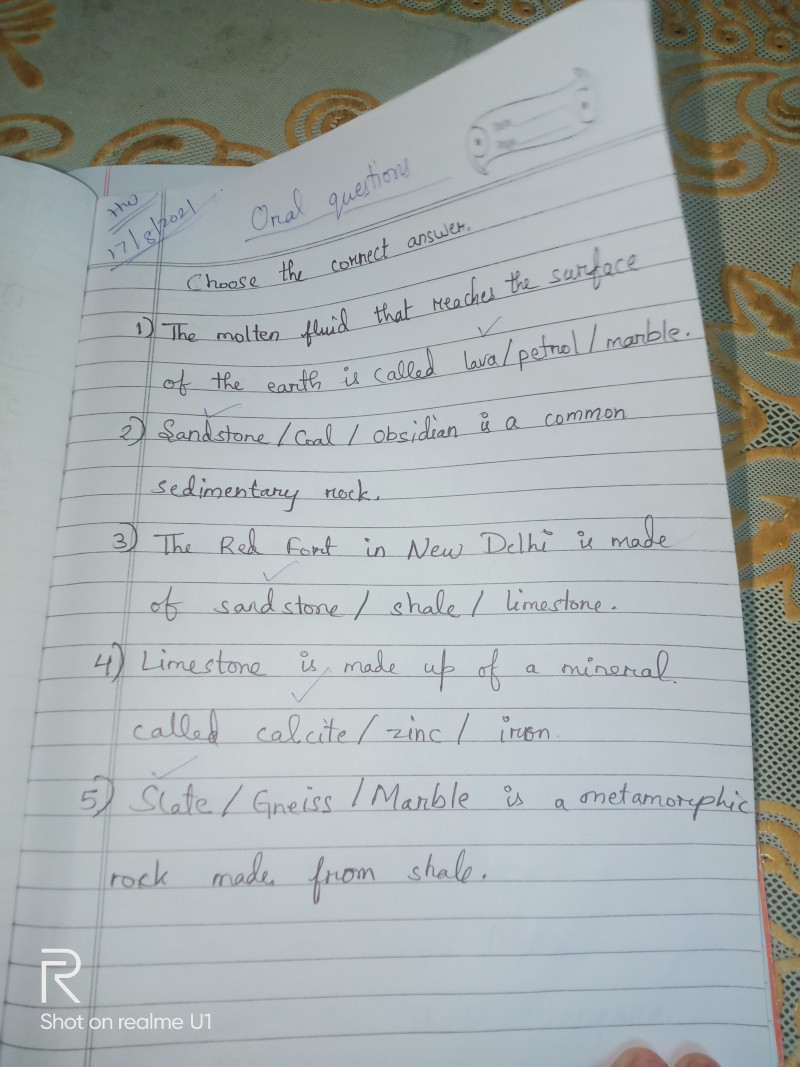 HW
17/8/2021
Oral questions
Choose the correct answer.
1) The molten fluid that reaches the surface
of the earth is called lava/petrol/marble.
2) Sandstone/Coal/Obsidian is a common
sedimentary rock.
3) The Red Fort in New Delhi is made
of sandstone/shale/limestone.
4) Limestone is made up of a mineral.
called calcite/zinc/iron.
5) Slate/Gneiss/Marble is a metamorphic
rock made from shale.
Shot on realme U1